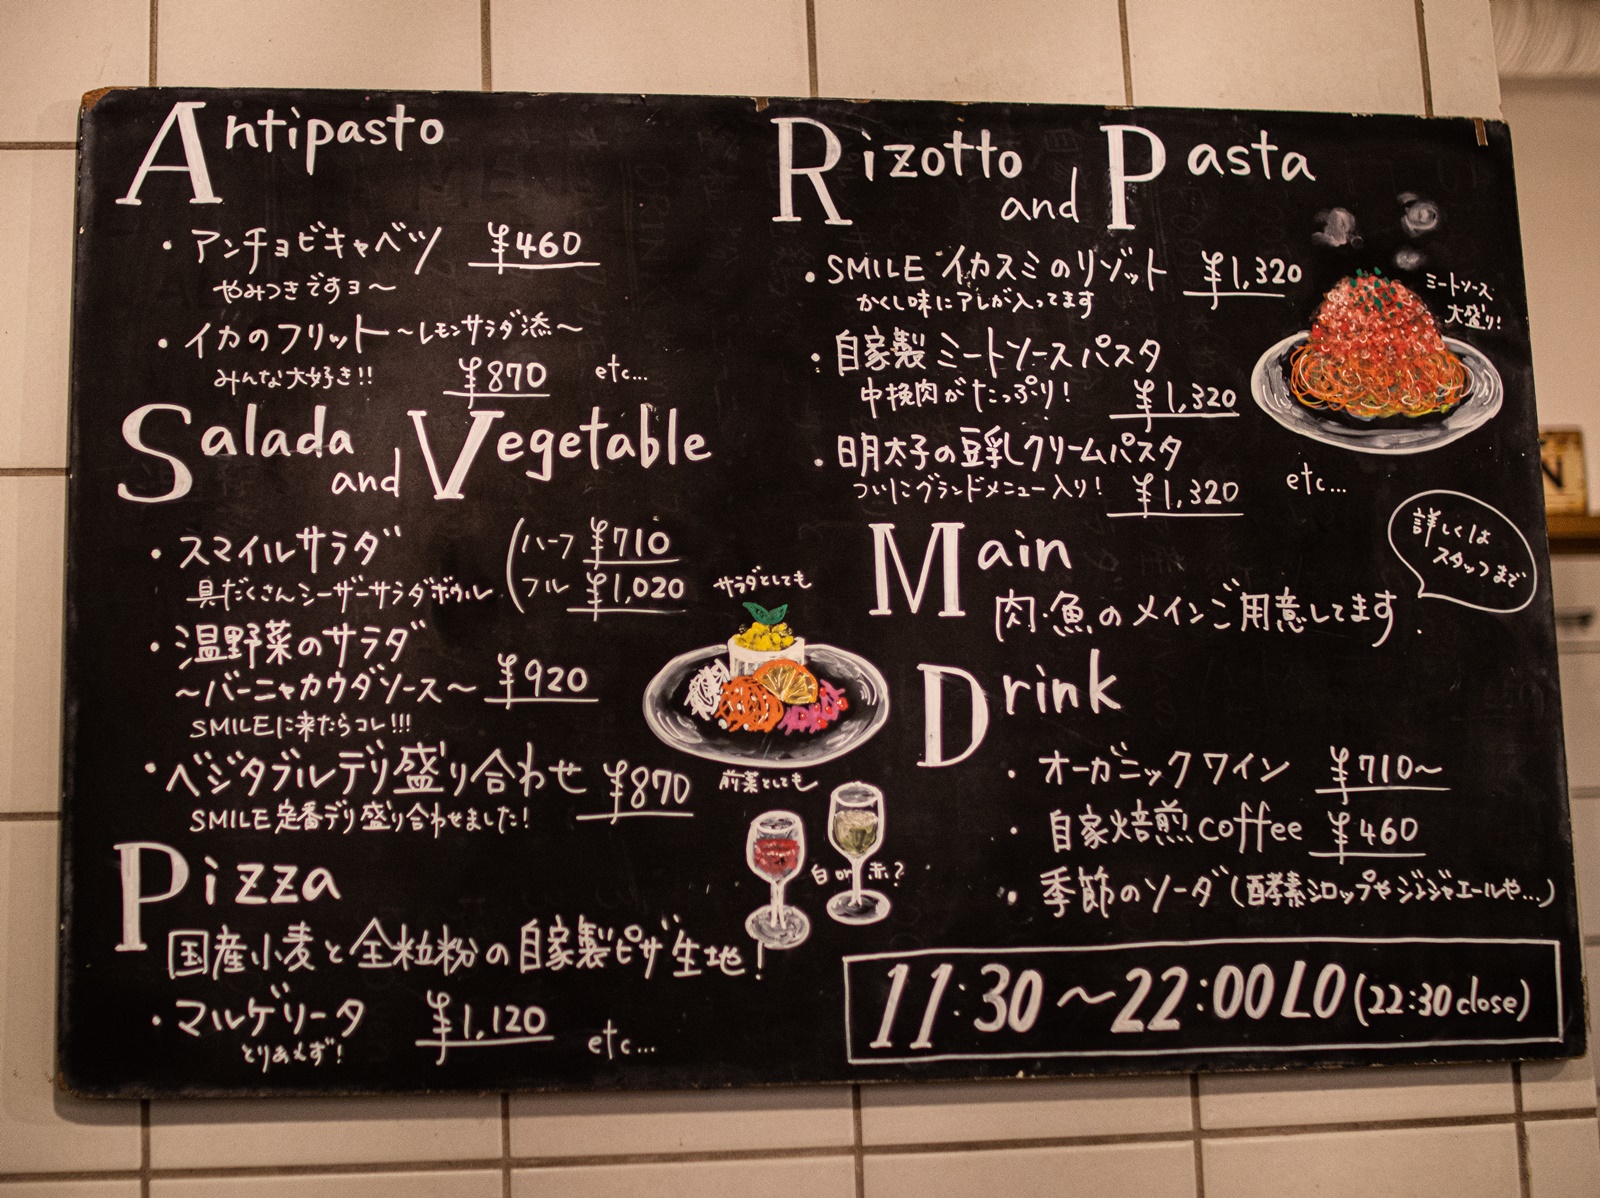 Antipasto
・アンチョビキャベツ ¥460
やみつきですヨ〜
・イカのフリット〜レモンサラダ添〜
みんな大好き!! ¥870 etc...
Salada and Vegetable
・スマイルサラダ (ハーフ ¥710
具だくさんシーザーサラダボウル フル ¥1,020
・温野菜のサラダ
〜バーニャカウダソース〜 ¥920
SMILEに来たらコレ!!!
・ベジタブルデリ盛り合わせ ¥870
SMILE定番デリ盛り合わせました!
サラダとしても
前菜としても
白or赤?
Pizza
国産小麦と全粒粉の自家製ピザ生地!
・マルゲリータ ¥1,120 etc...
とりあえず!
Rizotto and Pasta
・SMILE イカスミのリゾット ¥1,320
かくし味にアレが入ってます
・自家製ミートソースパスタ
中挽肉がたっぷり! ¥1,320
・明太子の豆乳クリームパスタ
ついにグランドメニュー入り! ¥1,320 etc...
ミートソース
大盛り!
Main
肉・魚のメインご用意してます.
詳しくは
スタッフまで
Drink
・オーガニックワイン ¥710〜
・自家焙煎coffee ¥460
・季節のソーダ(酵素シロップやジンジャエールや...)
11:30〜22:00 LO (22:30 close)